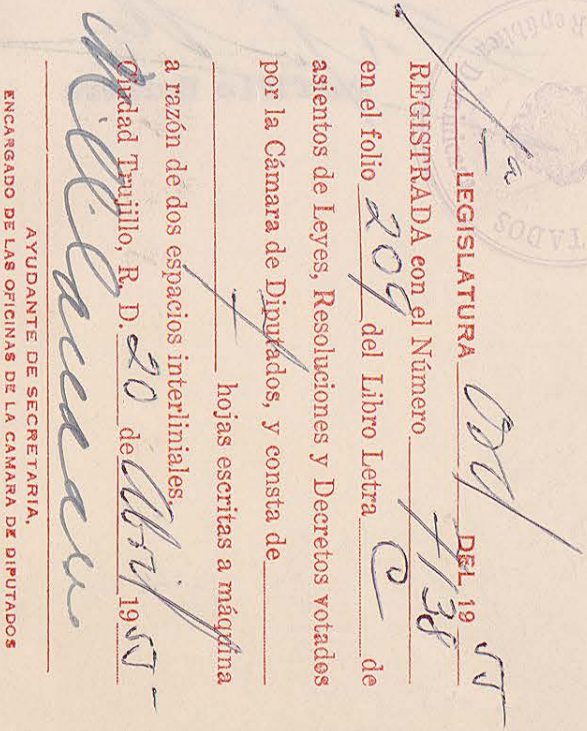 1ª LEGISLATURA Ord. DEL 1955
REGISTRADA con el Número 7138
en el folio 209 del Libro Letra C de
asientos de Leyes, Resoluciones y Decretos votados
por la Cámara de Diputados, y consta de
1 hojas escritas a máquina
a razón de dos espacios interliniales.
Ciudad Trujillo, R. D. 20 de Abril 1955-
AYUDANTE DE SECRETARIA,
ENCARGADO DE LAS OFICINAS DE LA CAMARA DE DIPUTADOS